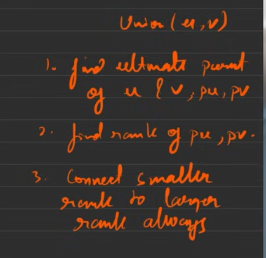 Union(u,v)
1. find ultimate parent
of u & v, pu, pv
2. find rank of pu, pv.
3. Connect smaller
rank to larger
rank always